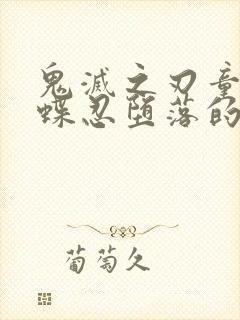 鬼滅之刃童
蝶忍堕落的
葡萄久